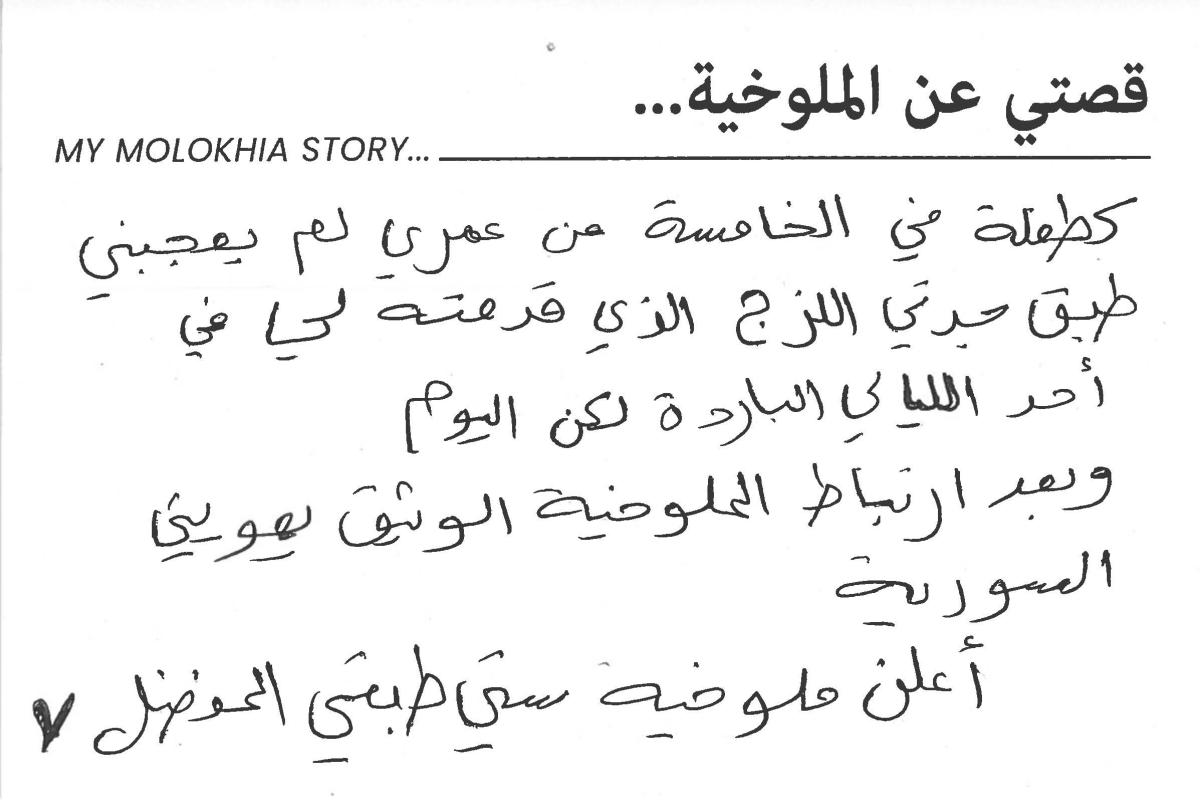 قصتي عن الملوخية...
MY MOLOKHIA STORY...
كطفلة في الخامسة من عمري لم يعجبني
طبق جدتي اللزج الذي قدمته لي في
أحد الليالي الباردة لكن اليوم
وبعد ارتباط الملوخية الوثيق بهويتي
السورية
أعلن ملوخية ستي طبقي المفضل